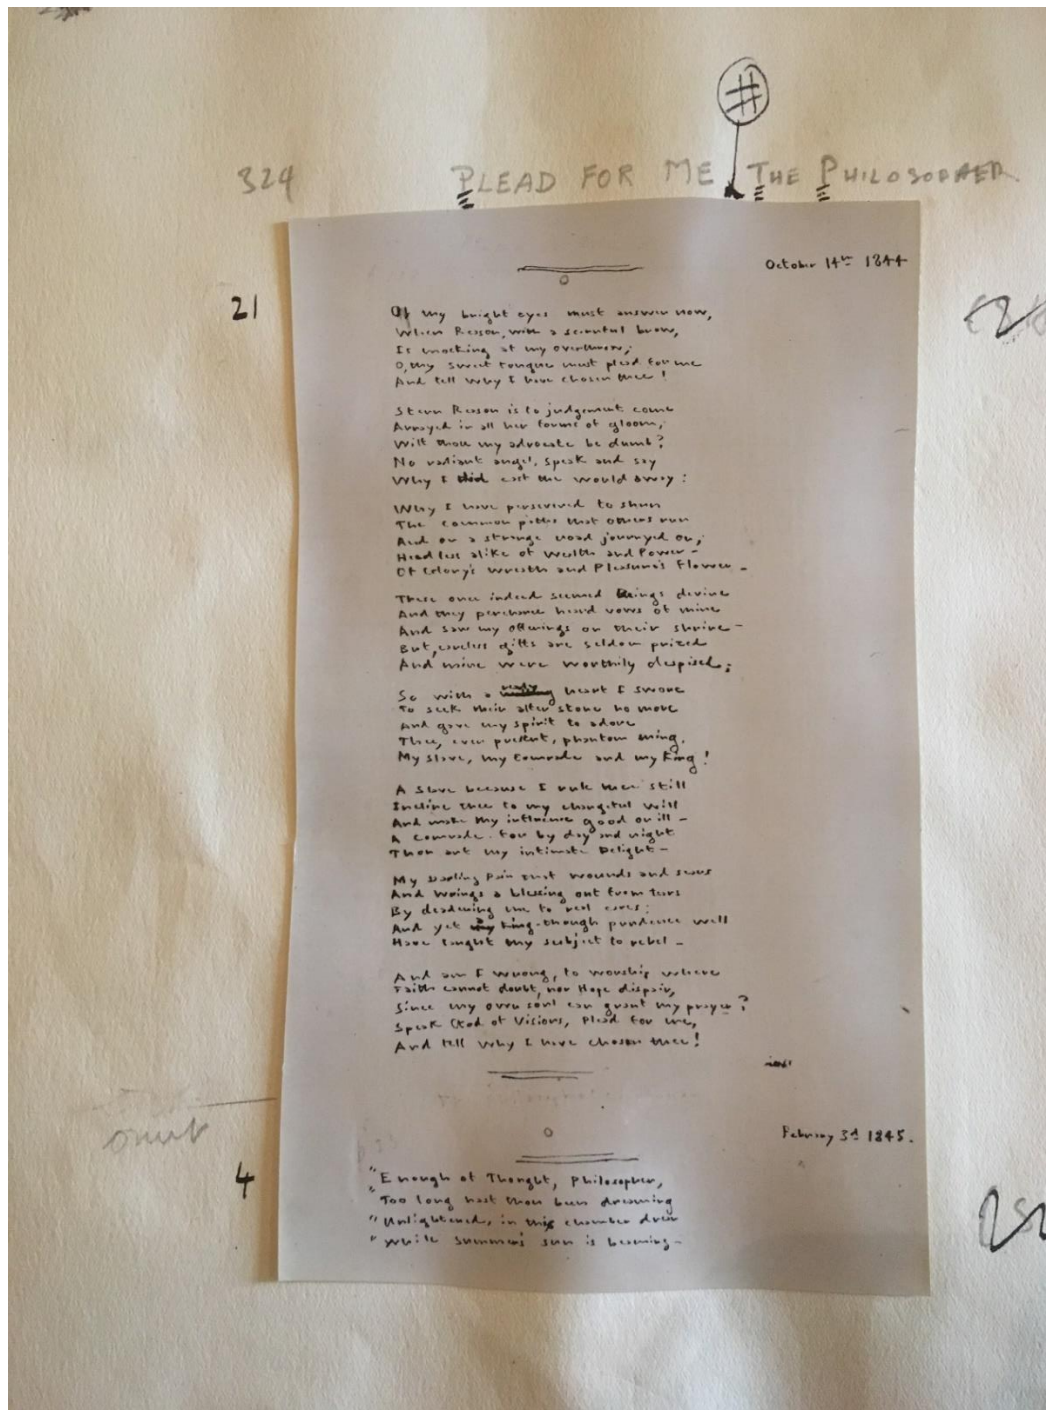 324 PLEAD FOR ME # THE PHILOSOPHER
October 14th 1844
21
O my bright eyes must answer now,
When Reason, with a scornful brow,
Is mocking at my overthrow;
O, my sweet tongue must plead for me
And tell why I have chosen thee!
Stern Reason is to judgement come
Arrayed in all her forms of gloom;
Wilt thou my advocate be dumb?
No radiant angel, speak and say
Why I did cast the world away:
Why I have persevered to shun
The common paths that others run
And on a strange road journeyed on;
Heedless alike of Wealth and Power -
Of Glory's wreath and Pleasure's flower -
These once indeed seemed Beings divine
And they perchance heard vows of mine
And saw my offerings on their shrine -
But, careless gifts are seldom prized
And mine were worthily despised;
So with a ready heart I swore
To seek their alter stone no more
And gave my spirit to adore
Thee, ever present, phantom thing,
My Slave, my Comrade and my King!
A Slave because I rule thee still
Incline thee to my changeful will
And make thy influence good or ill -
A Comrade - for by day and night
Thou art my intimate Delight -
My Darling Pain that wounds and sears
And wrings a blessing out from tears
By deadening me to real cares;
And yet my king - though prudence well
Have taught thy subject to rebel -
And am I wrong, to worship where
Faith cannot doubt, nor Hope dispair,
Since my own soul can grant my prayer?
Speak God of Visions, plead for me,
And tell why I have chosen thee!
omit
February 3d 1845.
4
"Enough of Thought, Philosopher,
"Too long hast thou been dreaming
"Unlightened, in this chamber drear
"While summer's sun is beaming -